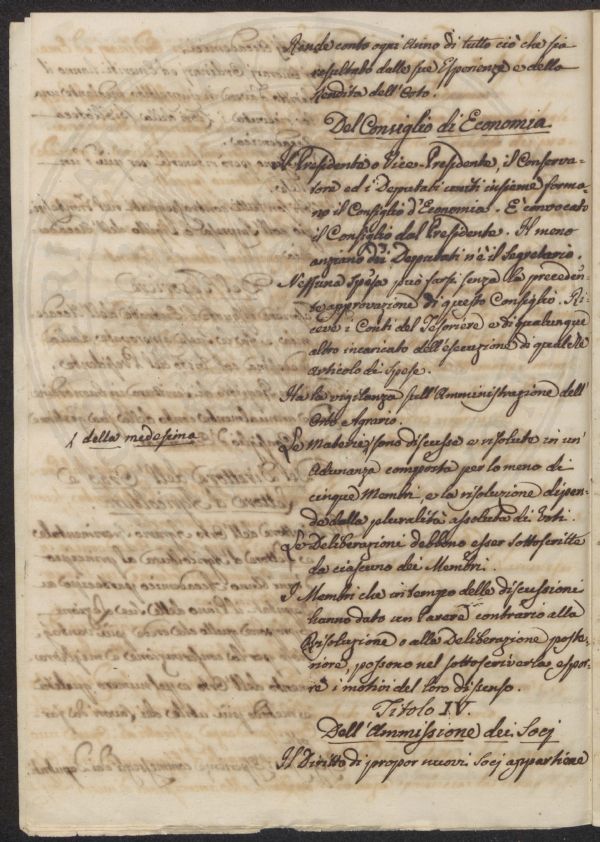 Rende conto ogni Anno di tutto ciò che sia
resultato dalle sue Esperienze e della
Rendita dell'Orto.
Del Consiglio di Economia
Il Presidente o Vice-Presidente, il Conserva-
tore ed i Deputati uniti insieme forma-
no il Consiglio d'Economia. È convocato
il Consiglio dal Presidente. Il meno
anziano dei Deputati n'è il Segretario.
Nessuna Spesa può farsi senza la preceden-
te approvazione di questo Consiglio. Ri-
ceve i Conti del Tesoriere e di qualunque
altro incaricato dell'esecuzione di qualche
articolo di Spese.
Ha la vigilanza sull'Amministrazione dell'
Orto Agrario.
della medesima
Le Materie, sono discusse e risolute in un'
Adunanza composta per lo meno di
cinque Membri, e la risoluzione dipen-
de dalla pluralità assoluta di Voti.
Le Deliberazioni debbono esser sottoscritte
da ciascuno dei Membri.
I Membri che in tempo delle discussioni
hanno dato un Parere contrario alla
Risoluzione o alla Deliberazione poste-
riore, possono nel sottoscriverla espor-
re i motivi del loro dissenso.
Titolo IV.
Dell'Ammissione dei Socj
Il Diritto di propor nuovi Socj appartiene